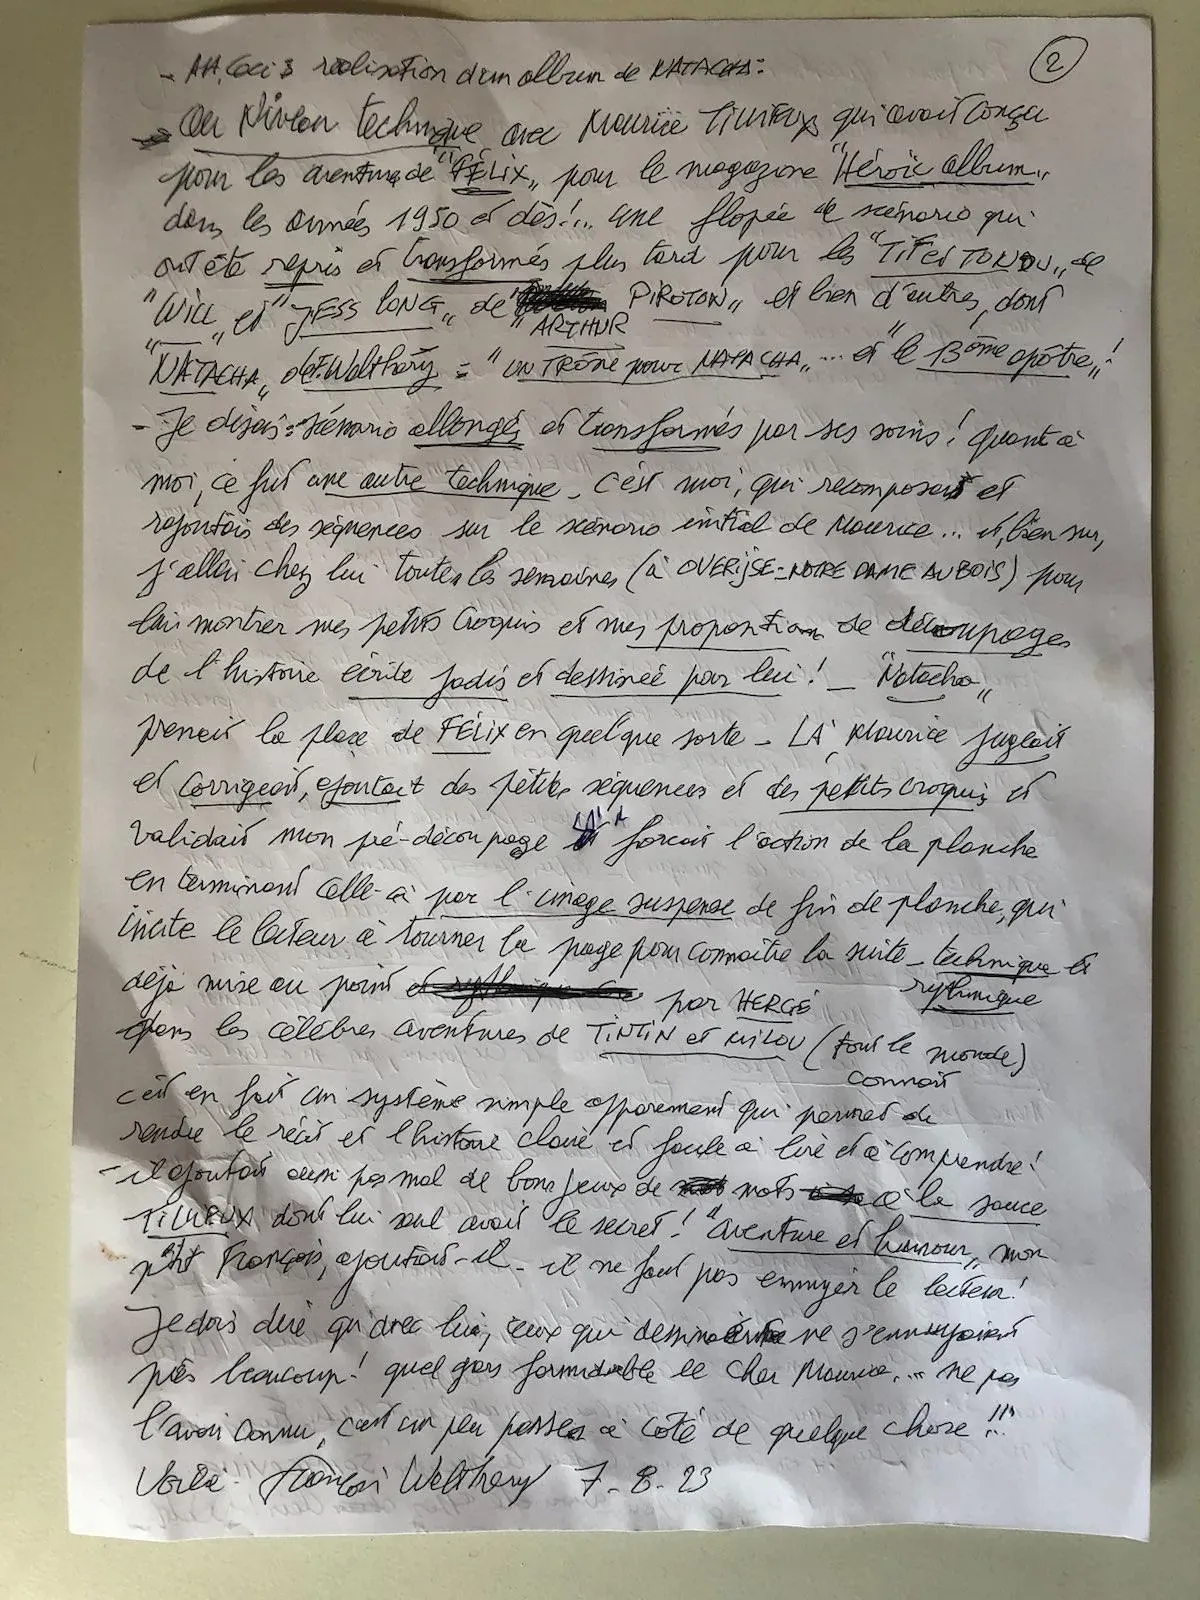 ②
- AH, Ceci 3 réalisation d'un album de NATACHA =
- au Niveau technique avec Maurice TILLIEUX qui avait conçu
pour les aventures de "FÉLIX" pour le magazine "Héroïc album"
dans les années 1950 et dès!... une flopée de scénario qui
ont été repris et transformés plus tard pour les "TIF et TONDU" de
"WILL" et "JESS LONG" de "ARTHUR PIROTON" et bien d'autres, dont
"NATACHA" de F. Walthéry = "UN TRÔNE pour NATACHA"... et "le 13ème apôtre"!
- Je disais = scénario allongés et transformés par ses soins! quant à
moi, ce fut une autre technique - c'est moi, qui recomposait et
rajoutais des séquences sur le scénario initial de Maurice... et, bien sur,
j'allai chez lui toutes les semaines (à OVERIJSE - NOTRE DAME AU BOIS) pour
lui montrer mes petits croquis et mes proposition de découpages
de l'histoire écrite jadis et dessinée par lui! - "Natacha"
prenait la place de FÉLIX en quelque sorte - LÀ, Maurice jugeait
et corrigeait, ajoutait des petites séquences et des petits croquis et
validait mon pré-découpage forçait l'action de la planche
en terminant celle-ci par l'image suspense de fin de planche, qui
incite le lecteur à tourner la page pour connaître la suite - technique et
rythmique
déjà mise au point par HERGÉ
dans les célèbres aventures de TINTIN et MILOU (tout le monde)
connait
c'est en fait un système simple apparement qui permet de
rendre le récit et l'histoire claire et facile à lire et à comprendre!
- il ajoutait aussi pas mal de bons jeux de mots à la sauce
TILLIEUX dont lui seul avait le secret! "aventure et humour" mon
p'tit François, ajoutait-il - il ne faut pas ennuyer le lecteur!
Je dois dire qu'avec lui, ceux qui ne s'ennuyaient
pas beaucoup! quel gars formidable ce cher Maurice,... ne pas
l'avoir connu, c'est un peu passer à côté de quelque chose!!!
Voilà - François Walthéry 7-8-23